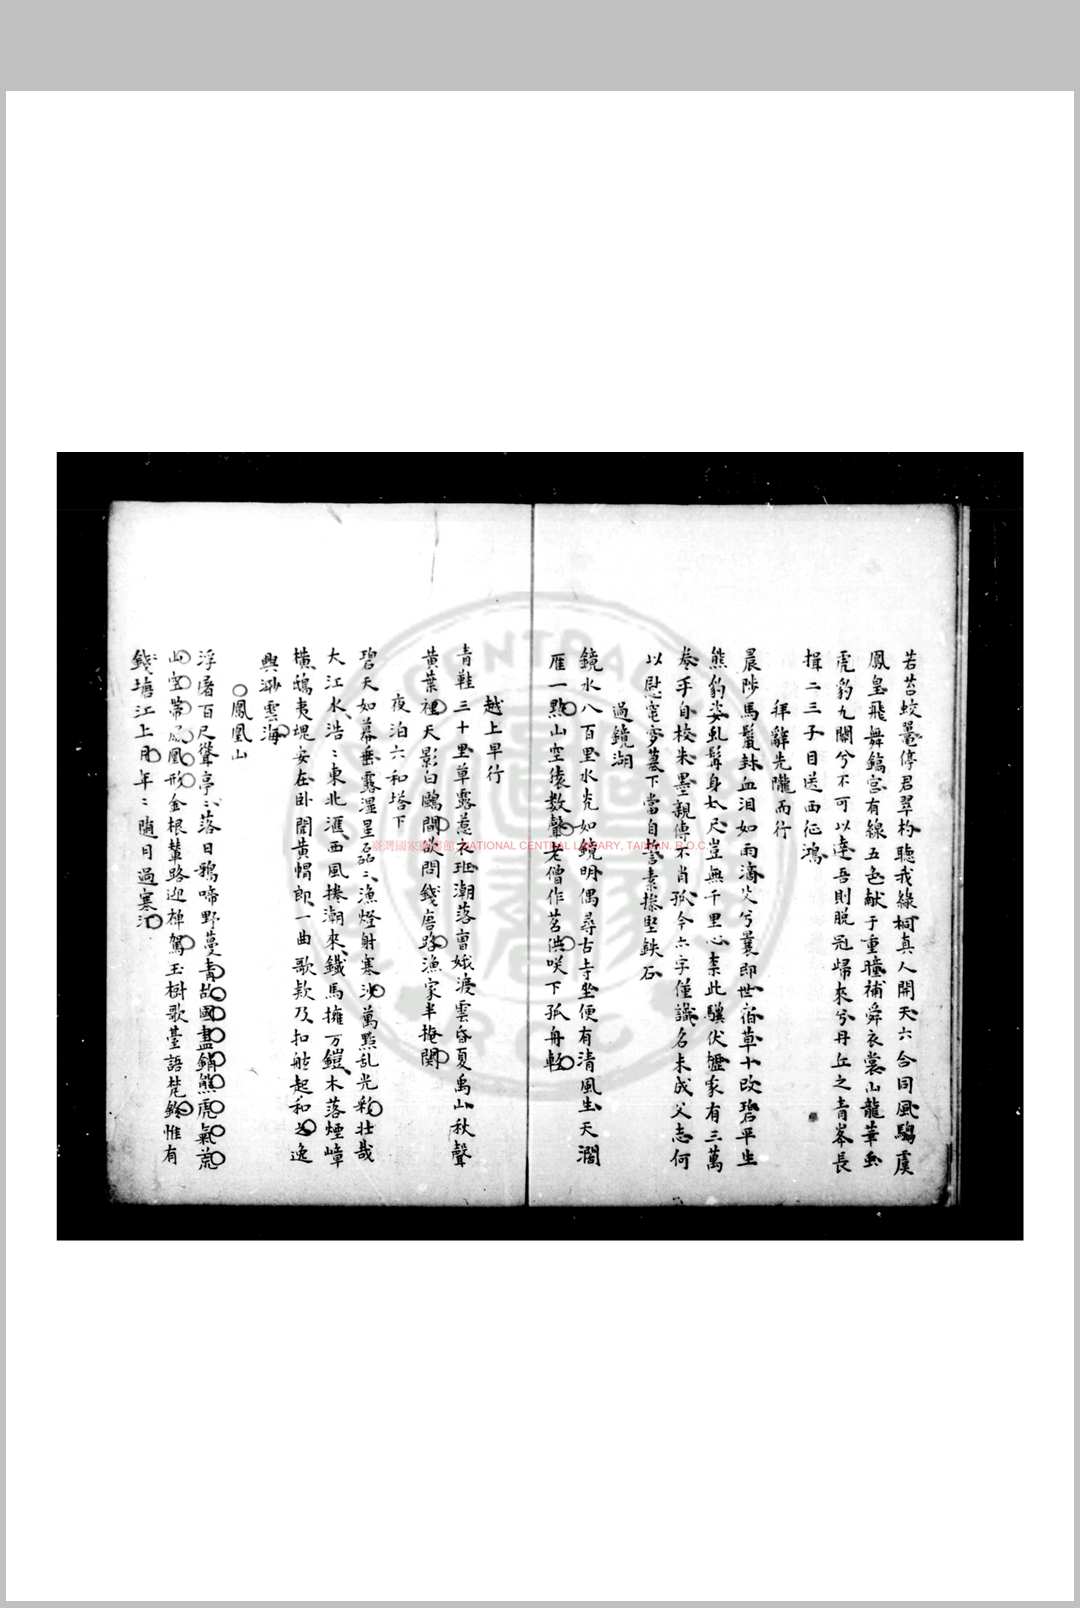 若苔蛟鼍停君翠杓聽我綠桐真人開天六合同風騶虞
鳳皇飛舞鎬宮有線五色献于重瞳補舜衣裳山龍華虫
虎豹九關兮不可以達吾則脱冠歸來兮丹丘之青峯長
揖二三子目送西征鴻
拜辭先隴而行
晨陟馬鬣封血泪如雨滴父兮曩即世宿草十改碧平生
熊豹姿虬髯身七尺豈無千里心柰此驥伏櫪家有三萬
卷手自校朱墨親傳不肖孤今六字僅識名未成父志何
以慰窀穸墓下當自誓素操堅鉄石
過鏡湖
鏡水八百里水光如鏡明偶尋古寺坐便有清風生天濶
雁一點山空猿數聲老僧作茗供咲下孤舟輕
越上早行
青鞋三十里草露惹衣班潮落曹娥渡雲昏夏禹山秋聲
黄葉裡天影白鷗間欲問錢唐路漁家半掩関
夜泊六和塔下
碧天如幕垂露濕星磊磊漁燈射寒沙萬點乱光彩壮哉
大江水浩浩東北滙西風捲潮來鐵馬擁万鎧木落煙嶂
橫鴟夷塊安在卧聞黄帽郎一曲歌欵乃扣舷起和之逸
興渺雲海
鳳凰山
浮屠百尺聳亭亭落日鴉啼野蔓青故國盡銷熊虎氣荒
山空帶鳳凰形金根輦路迎禅駕玉樹歌臺語梵鈴惟有
錢塘江上月年年随日過寒汀
臺灣國家圖書館 NATIONAL CENTRAL LIBRARY, TAIWAN, R.O.C